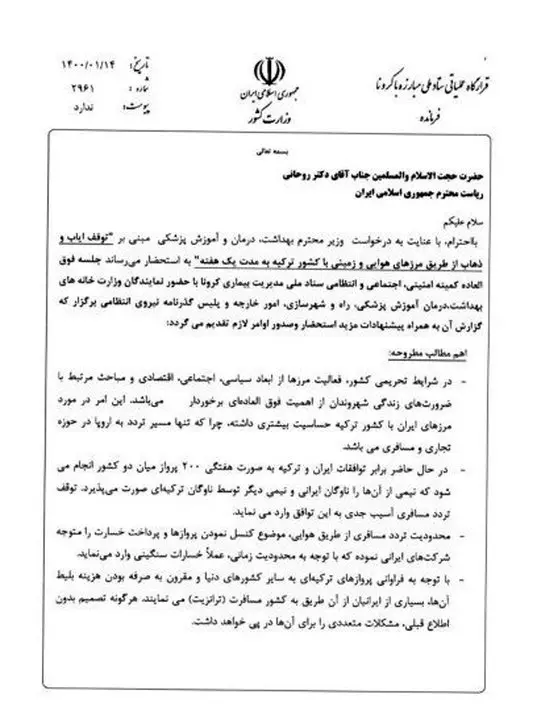 تاریخ: ۱۴۰۰/۰۱/۱۴
شماره: ۲۹۶۱
پیوست: ندارد
جمهوری اسلامی ایران
وزارت کشور
قرارگاه عملیاتی ستاد ملی مبارزه با کرونا
فرمانده
بسمه تعالی
حضرت حجت الاسلام والمسلمین جناب آقای دکتر روحانی
ریاست محترم جمهوری اسلامی ایران
سلام علیکم
بااحترام، با عنایت به درخواست وزیر محترم بهداشت، درمان و آموزش پزشکی مبنی بر "توقف ایاب و
ذهاب از طریق مرزهای هوایی و زمینی با کشور ترکیه به مدت یک هفته" به استحضار می‌رساند جلسه فوق
العاده کمیته امنیتی، اجتماعی و انتظامی ستاد ملی مدیریت بیماری کرونا با حضور نمایندگان وزارت خانه های
بهداشت،درمان آموزش پزشکی، راه و شهرسازی، امور خارجه و پلیس گذرنامه نیروی انتظامی برگزار که
گزارش آن به همراه پیشنهادات مزید استحضار وصدور اوامر لازم تقدیم می گردد:
اهم مطالب مطروحه:
- در شرایط تحریمی کشور، فعالیت مرزها از ابعاد سیاسی، اجتماعی، اقتصادی و مباحث مرتبط با
ضرورت‌های زندگی شهروندان از اهمیت فوق العاده‌ای برخوردار می‌باشد. این امر در مورد
مرزهای ایران با کشور ترکیه حساسیت بیشتری داشته، چرا که تنها مسیر تردد به اروپا در حوزه
تجاری و مسافری می باشد.
- در حال حاضر برابر توافقات ایران و ترکیه به صورت هفتگی ۲۰۰ پرواز میان دو کشور انجام می
شود که نیمی از آن‌ها را ناوگان ایرانی و نیمی دیگر توسط ناوگان ترکیه‌ای صورت می‌پذیرد. توقف
تردد مسافری آسیب جدی به این توافق وارد می نماید.
- محدودیت تردد مسافری از طریق هوایی، موضوع کنسل نمودن پروازها و پرداخت خسارت را متوجه
شرکت‌های ایرانی نموده که با توجه به محدودیت زمانی، عملاً خسارات سنگینی وارد می‌نماید.
- با توجه به فراوانی پروازهای ترکیه‌ای به سایر کشورهای دنیا و مقرون به صرفه بودن هزینه بلیط
آن‌ها، بسیاری از ایرانیان از آن طریق به کشور مسافرت (ترانزیت) می نمایند. هرگونه تصمیم بدون
اطلاع قبلی، مشکلات متعددی را برای آن‌ها در پی خواهد داشت.